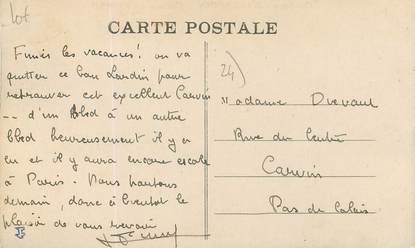 lot
CARTE POSTALE
Finies les vacances! on va
quitter ce bon Lardin pour
retrouver cet excellent Carvin
-- d'un bled à un autre
bled heureusement il y a
eu et il y aura encore escale
à Paris. Nous partons
demain, donc à bientôt le
plaisir de vous revoir
24)
Madame
Rue du Centre
Carvin
Pas de Calais